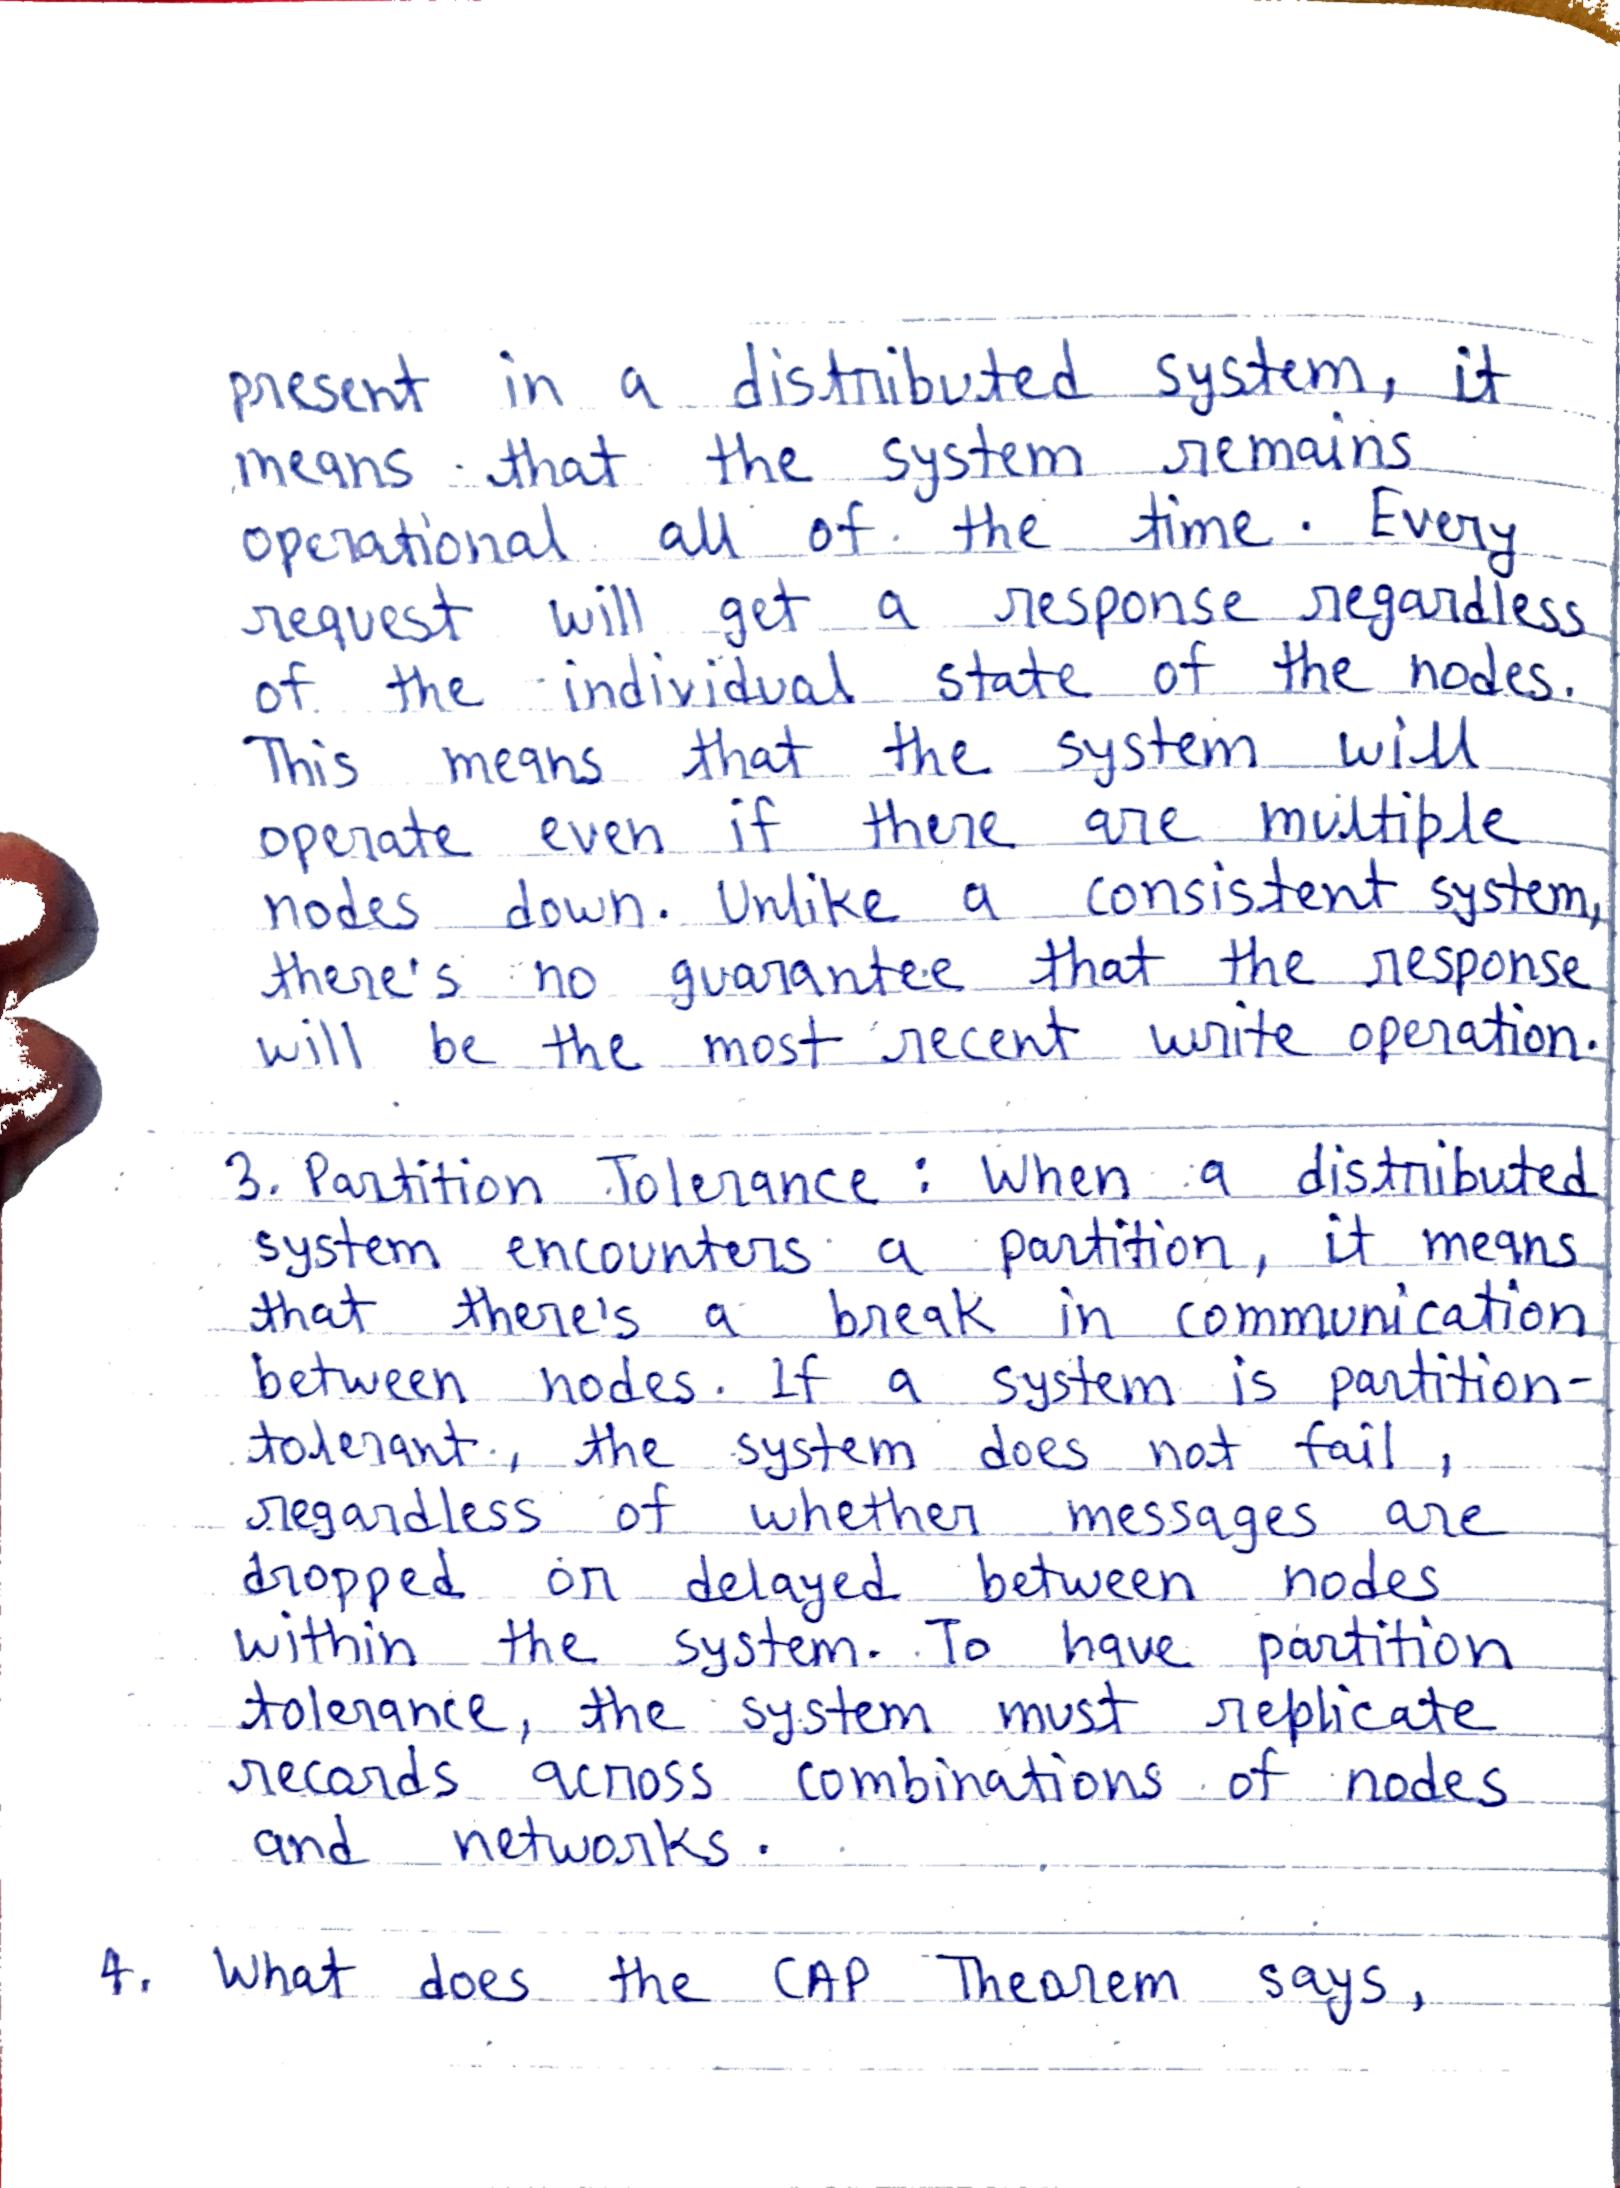 present in a distributed system, it
means that the system remains
operational all of the time. Every
request will get a response regardless
of the individual state of the nodes.
This means that the system will
operate even if there are multiple
nodes down. Unlike a consistent system,
there's no guarantee that the response
will be the most recent write operation.
3. Partition Tolerance : When a distributed
system encounters a partition, it means
that there's a break in communication
between nodes. If a system is partition-
tolerant, the system does not fail,
regardless of whether messages are
dropped or delayed between nodes
within the system. To have partition
tolerance, the system must replicate
records across combinations of nodes
and networks.
4. What does the CAP Theorem says,